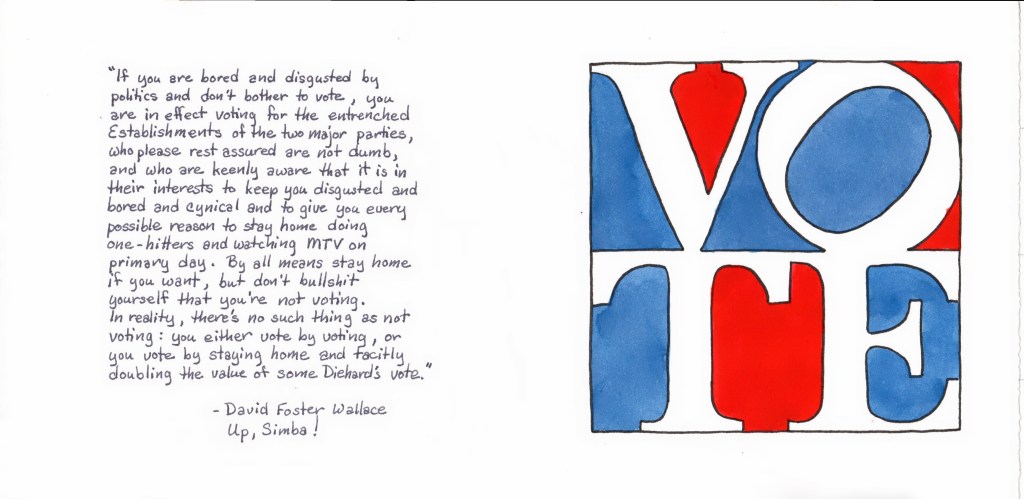 "If you are bored and disgusted by
politics and don't bother to vote, you
are in effect voting for the entrenched
Establishments of the two major parties,
who please rest assured are not dumb,
and who are keenly aware that it is in
their interests to keep you disgusted and
bored and cynical and to give you every
possible reason to stay home doing
one-hitters and watching MTV on
primary day. By all means stay home
if you want, but don't bullshit
yourself that you're not voting.
In reality, there's no such thing as not
voting: you either vote by voting, or
you vote by staying home and tacitly
doubling the value of some Diehard's vote."
- David Foster Wallace
Up, Simba!
VO
TE